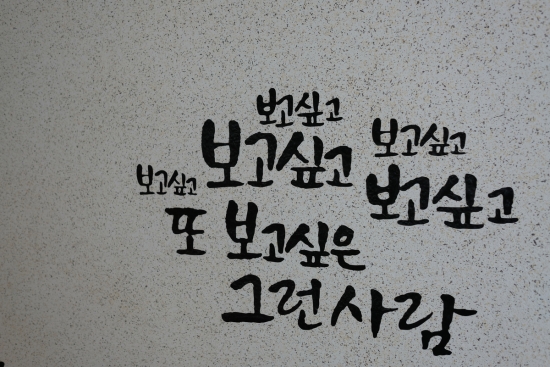 보고싶고
보고싶고 보고싶고
보고싶고 보고싶고
또 보고싶은
그런 사람